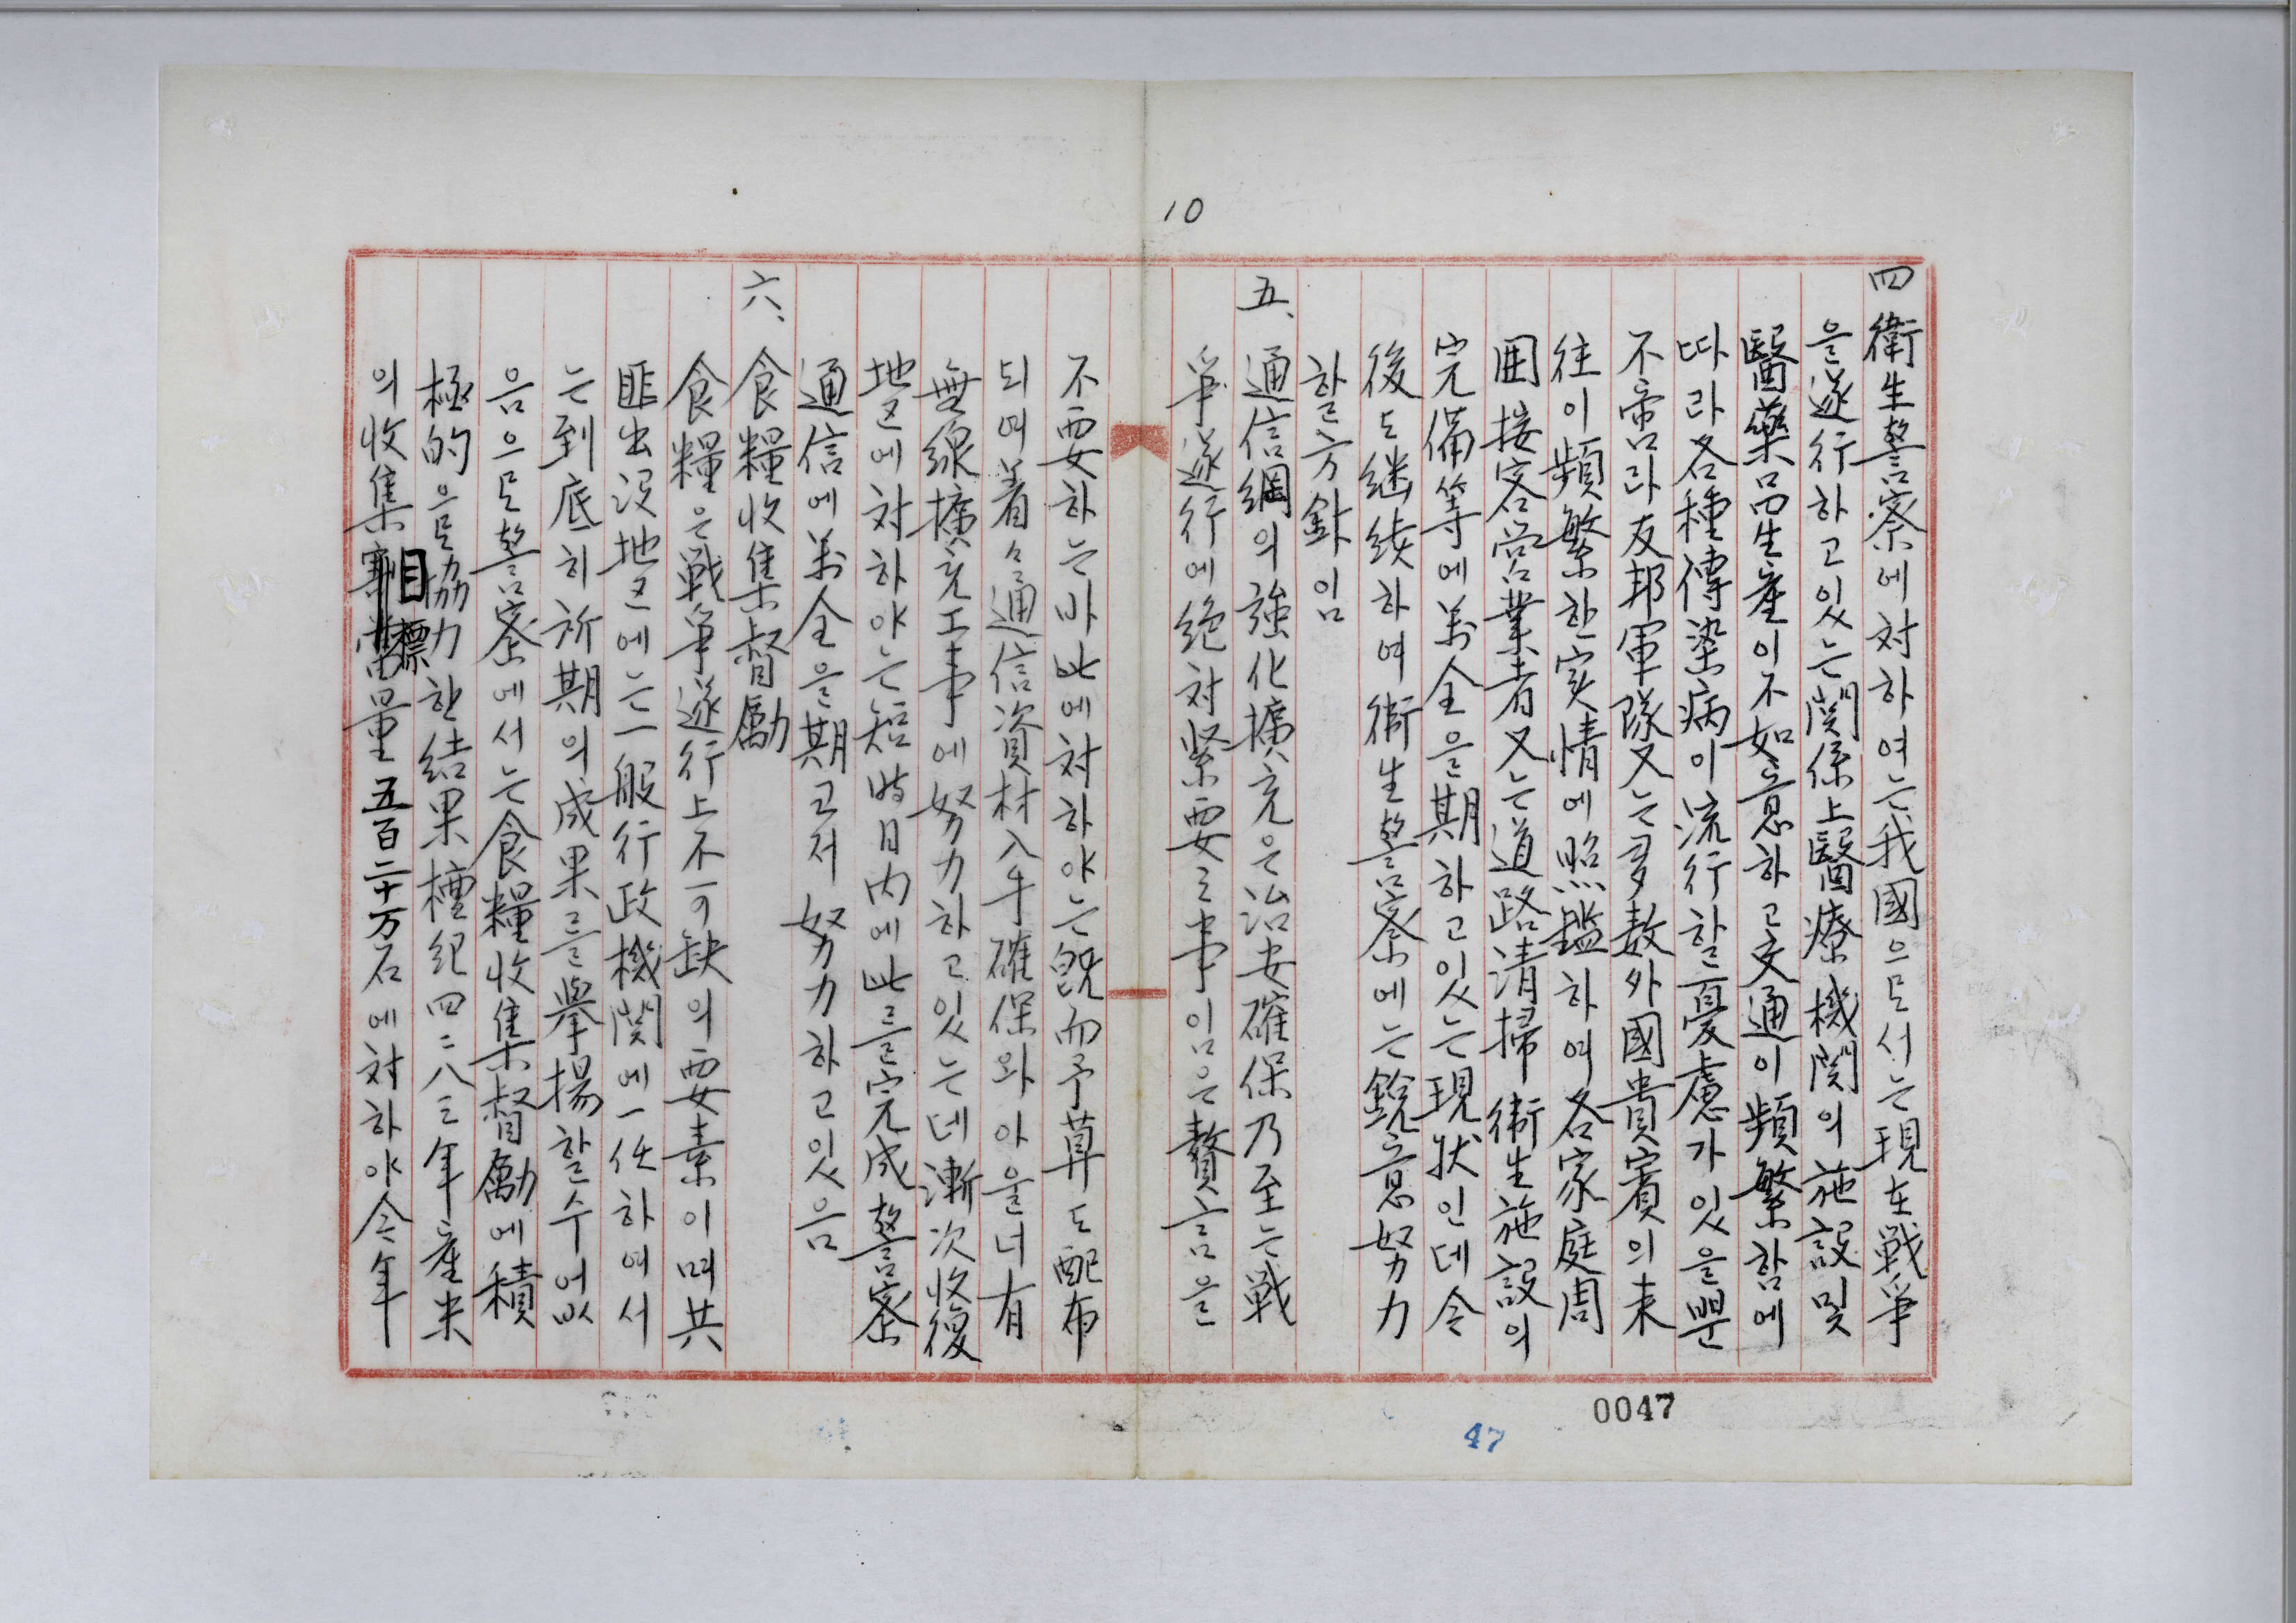 10
四 衛生警察에対하여는我國으로서는現在戦爭
을遂行하고있는関係上醫療機関의施設및
醫藥品生産이不如意하고交通이頻繁함에
따라各種傳染病이流行할憂慮가있을뿐
不啻라友邦軍隊又는多数外國貴賓의来
往이頻繁한実情에照鑑하여各家庭周
囲接客営業者又는道路清掃衛生施設의
完備等에萬全을期하고있는現状인데今
後도継続하여衛生警察에는鋭意努力
할方針임
五、通信網의強化擴充은治安確保乃至는戦
爭遂行에絶対緊要之事임은贅言을
不要하는바此에対하야는既而予算도配布
되여着々通信資材入手確保와아울너有
無線擴充工事에努力하고있는데漸次收復
地区에対하야는短時日内에此를完成警察
通信에萬全을期코저 努力하고있음
六、食糧收集督励
食糧은戦争遂行上不可缺의要素이며共
匪出没地区에는一般行政機関에一任하여서
는到底히所期의成果를擧揚할수어없
음으로警察에서는食糧收集督励에積
極的으로協力한結果檀紀四二八三年産米
의收集目標量五百二十万石에対하야今年
0047
47